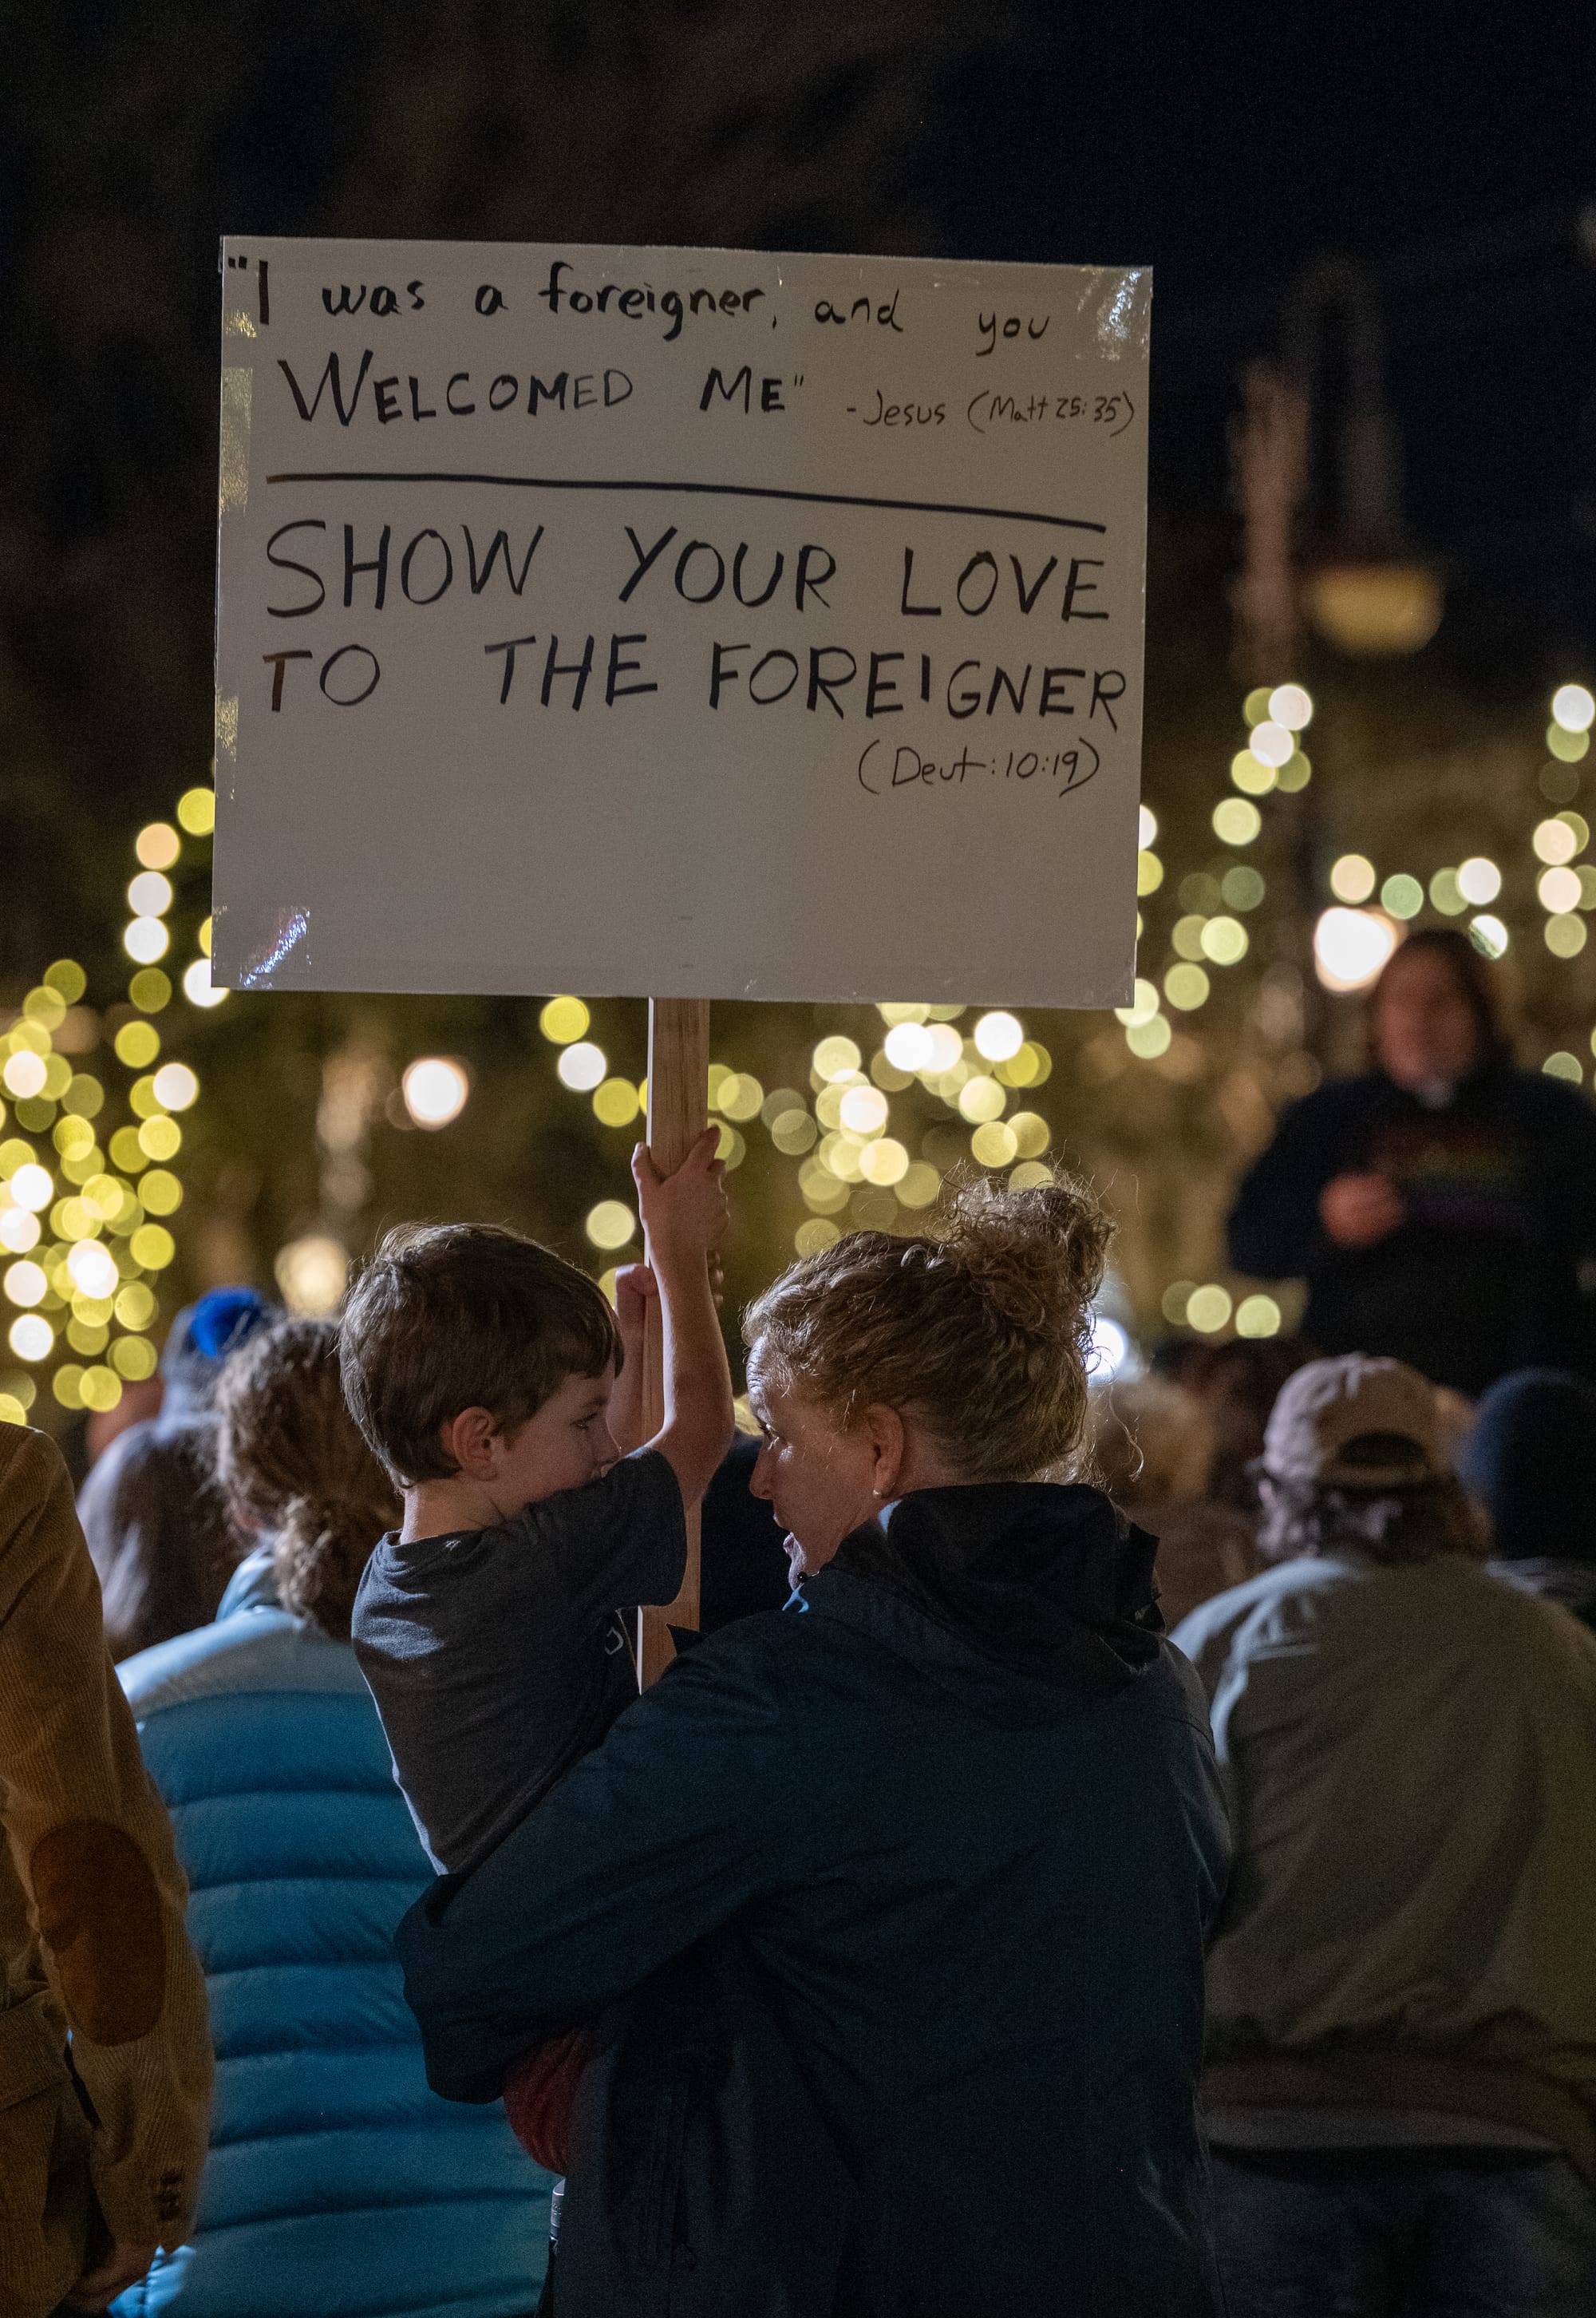 "I was a foreigner, and you
WELCOMED ME" -Jesus (Matt 25:35)
SHOW YOUR LOVE
TO THE FOREIGNER
(Deut:10:19)